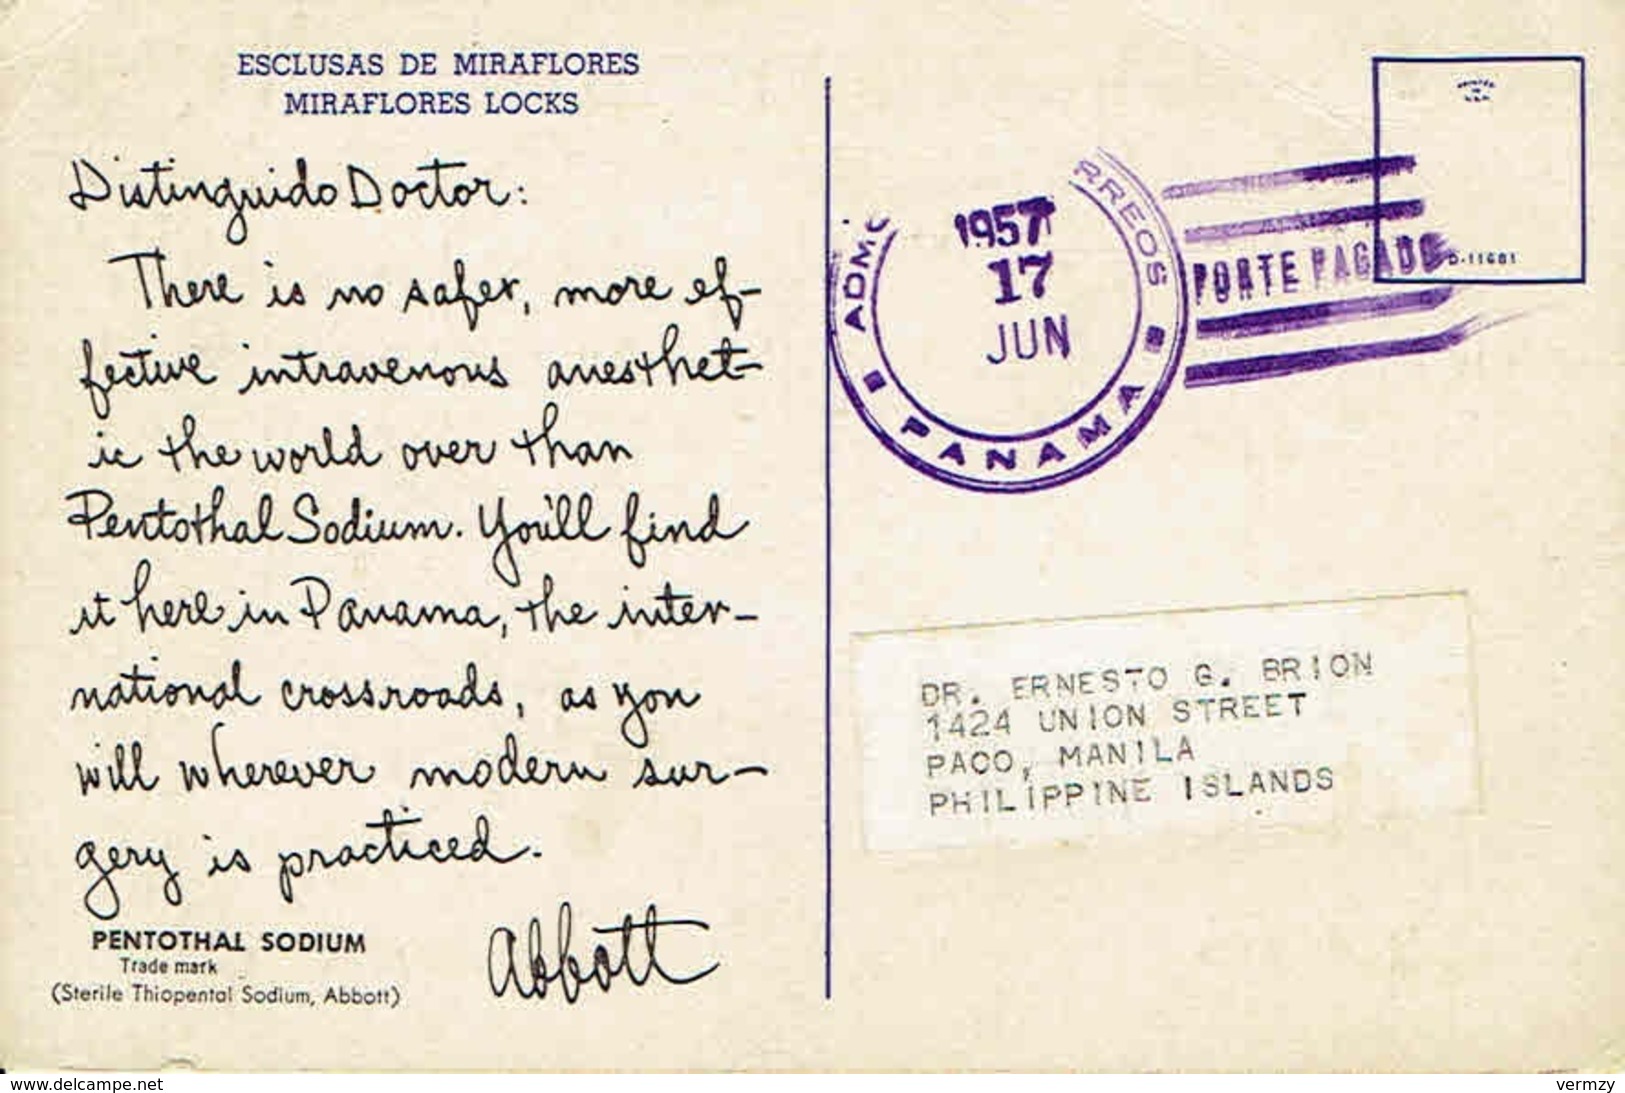 ESCLUSAS DE MIRAFLORES
MIRAFLORES LOCKS
Distinguido Doctor:
There is no safer, more ef-
fective intravenous anesthet-
ic the world over than
Pentothal Sodium. You'll find
it here in Panama, the inter-
national crossroads, as you
will wherever modern sur-
gery is practiced.
Abbott
PENTOTHAL SODIUM
Trade mark
(Sterile Thiopental Sodium, Abbott)
PRINTED
IN
U.S.A.
D-11681
ADMO
RREOS
1957
17
JUN
PANAMA
PORTE PAGADO
DR. ERNESTO G. BRION
1424 UNION STREET
PACO, MANILA
PHILIPPINE ISLANDS
www.delcampe.net
vermzy